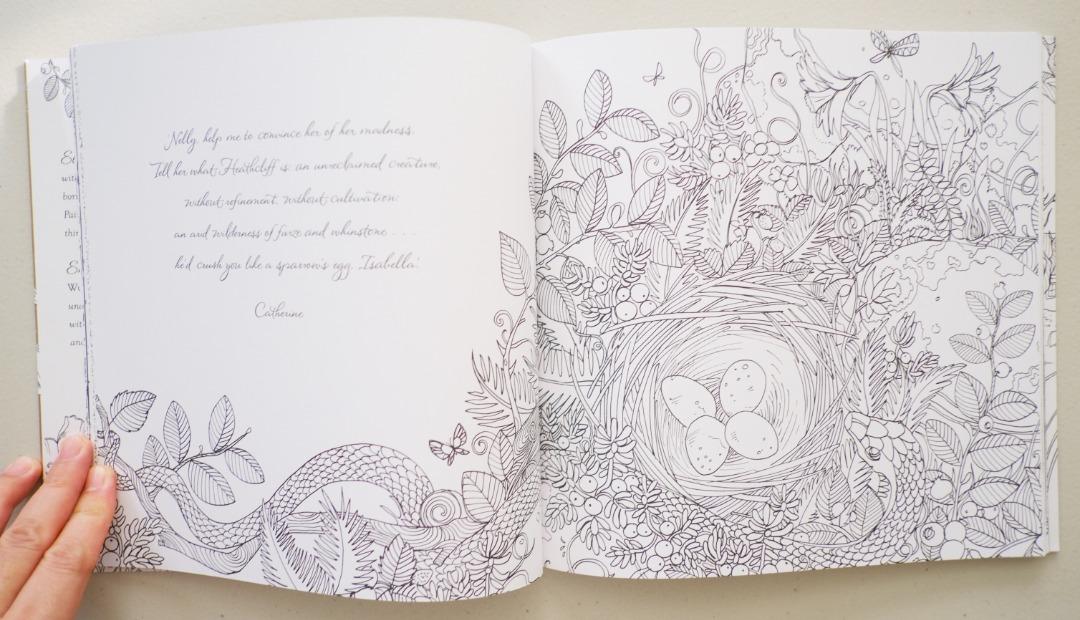 'Nelly, help me to convince her of her madness.
Tell her what Heathcliff is: an unreclaimed creature,
without refinement, without cultivation:
an arid wilderness of furze and whinstone . . .
he'd crush you like a sparrow's egg, Isabella'.
Catherine